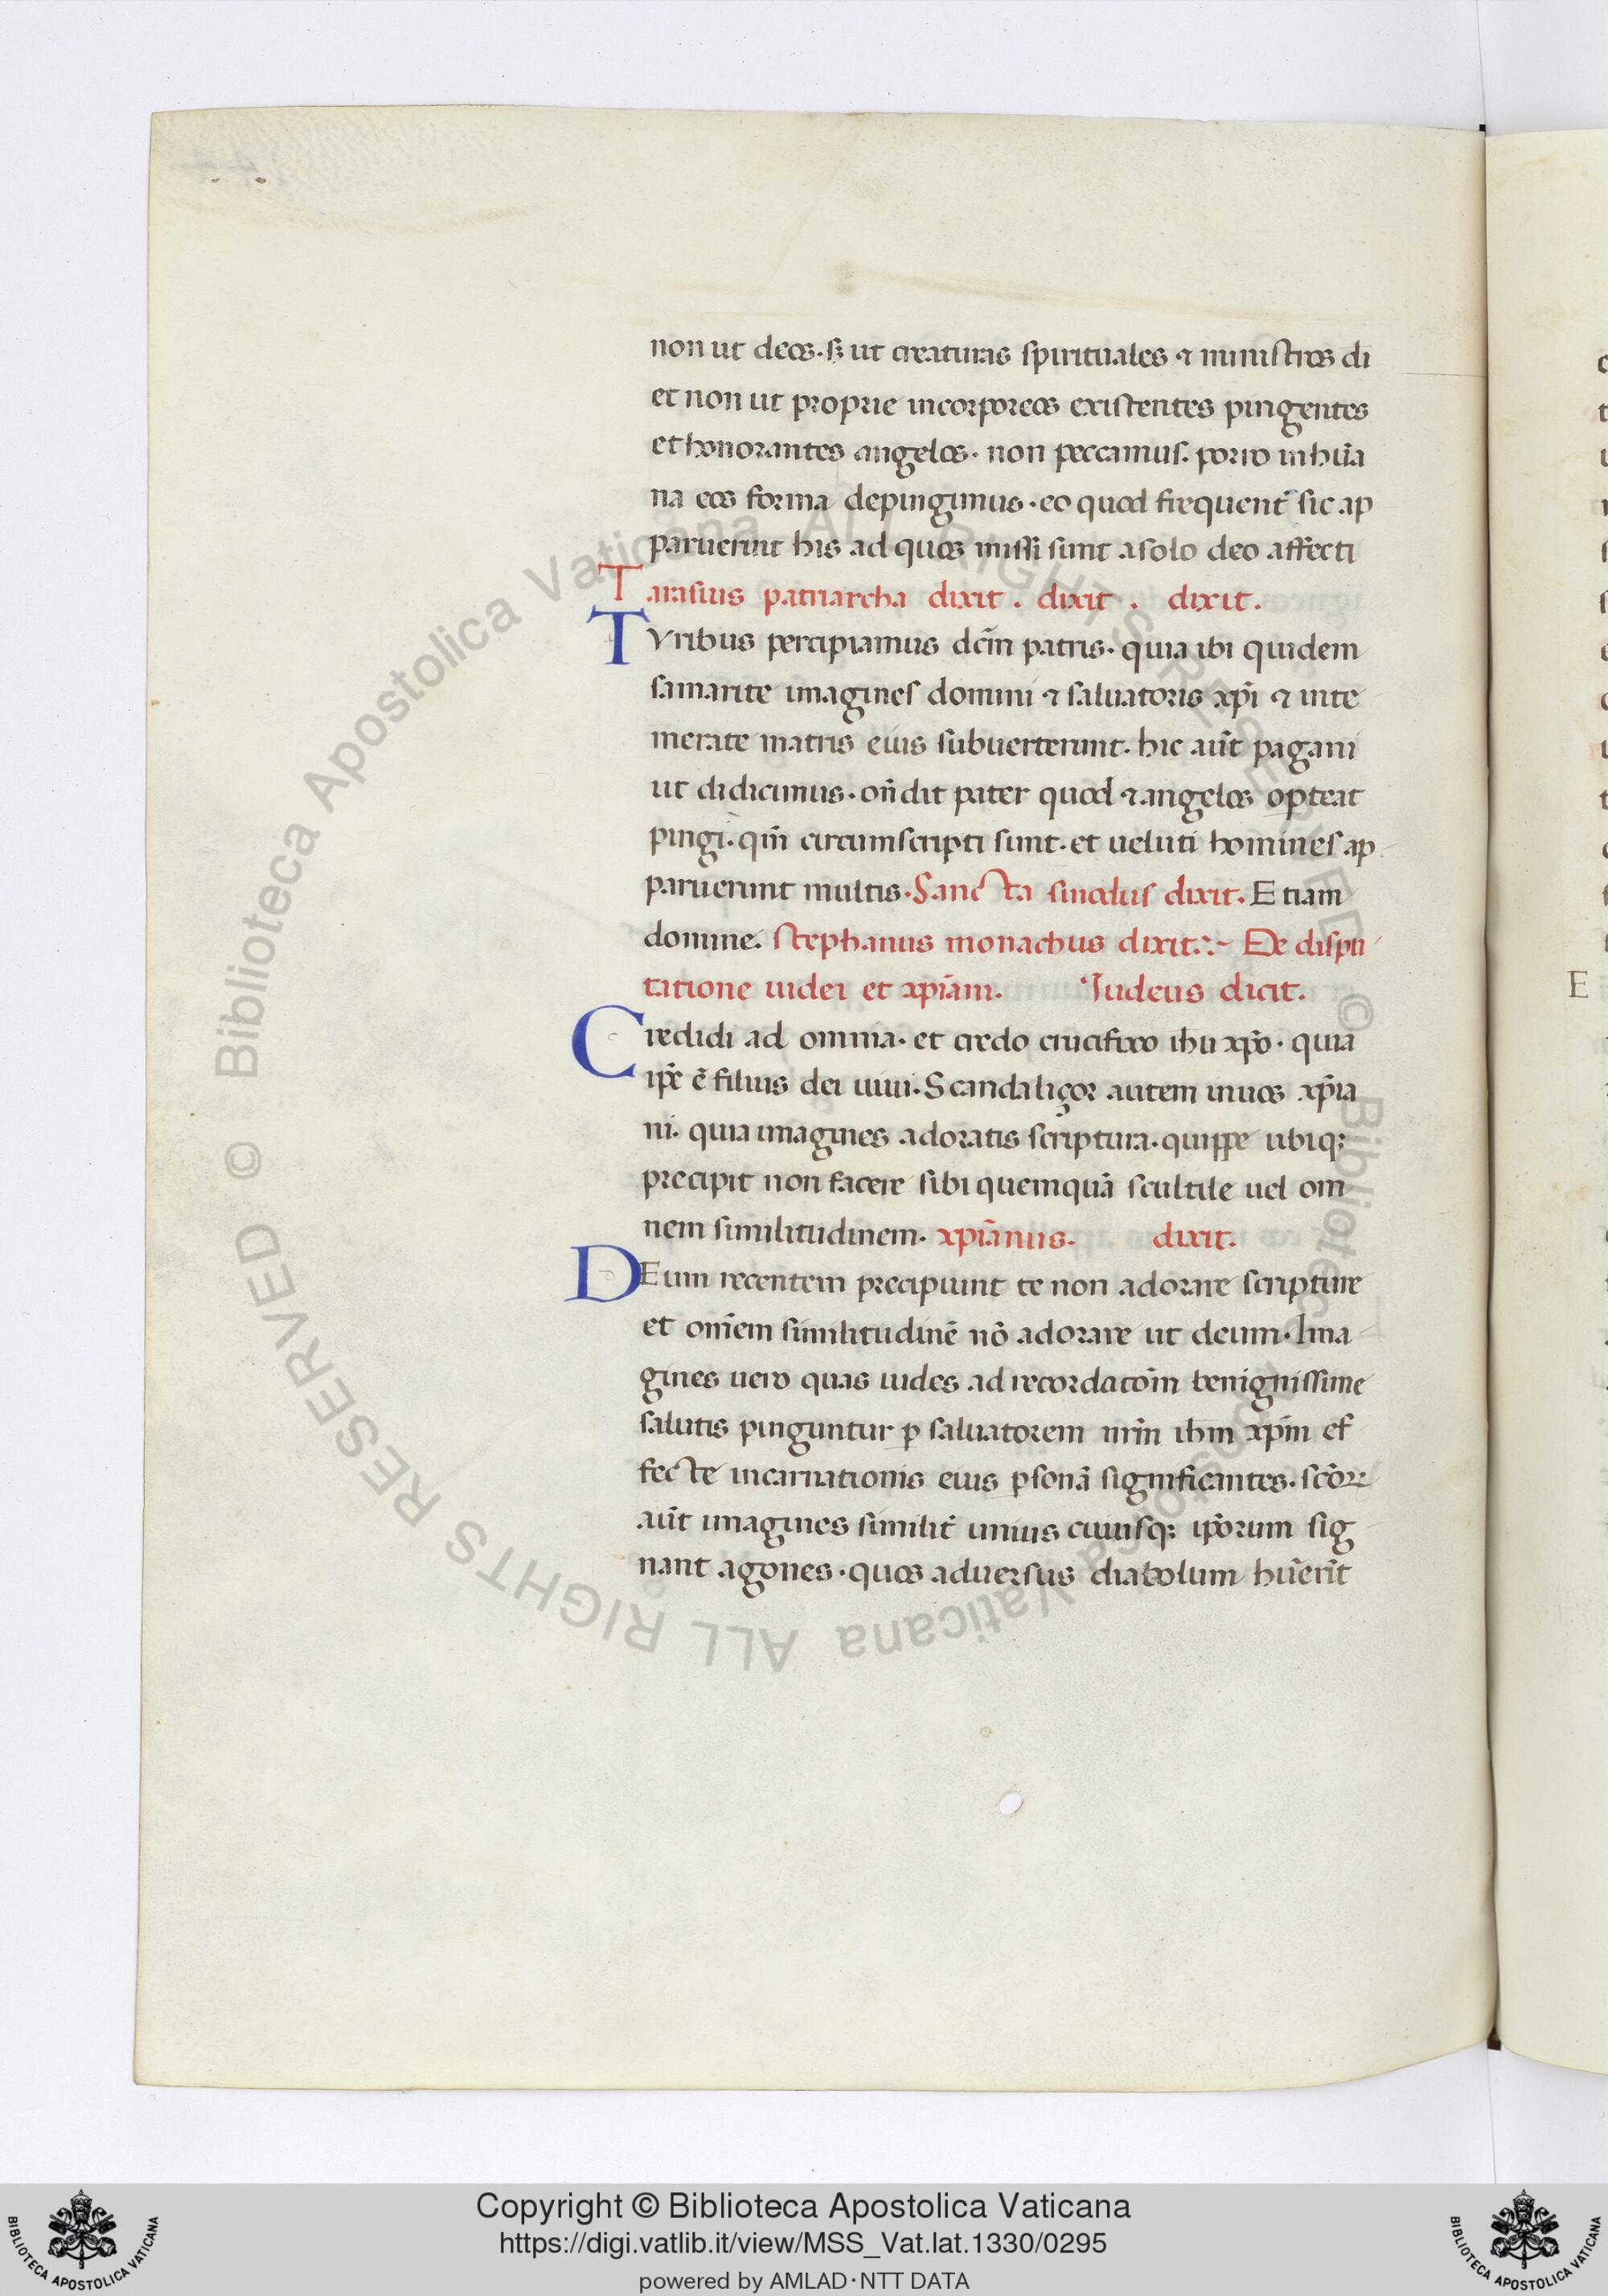 non ut deos · s; ut creaturas spirituales ⁊ ministros di
et non ut proprie incorporeos existentes pingentes
et honorantes angelos · non peccamus. porro in hūa
na eos forma depingimus · eo quod frequent̄ sic ap
paruerint his ad quos missi sunt a solo deo affecti
Tarasius patriarcha dixit . dixit . dixit.
TVribus percipiamus dc̄m patris · quia ibi quidem
samarite imagines domini ⁊ saluatoris xp̄i ⁊ inte
merate matris eius subuerterunt. hic aūt pagani
ut didicimus · on̄dit pater quod ⁊ angelos opteat
pingi · qm̄ circumscripti sunt. et ueluti homines ap
paruerunt multis · Sancta sinodus dixit. Etiam
domine. stephanus monachus dixit:~ De dispu
tatione iudei et xp̄iani. Iudeus dicit.
Credidi ad omnia · et credo crucifixo ihu xp̄o · quia
ip̄e ē filius dei uiui. Scandaliçor autem in uos xp̄ia
ni. quia imagines adoratis scriptura · quippe ubiq;
precipit non facere sibi quemquā scultile uel om
nem similitudinem. xp̄iānus. dixit.
DEum recentem precipiunt te non adorare scripture
et om̄em similitudinē nō adorare ut deum · Ima
gines uero quas uides ad recordatōm benignissime
salutis pinguntur p saluatorem nrm̄ ihm xp̄m ef
fecte incarnationis eius psonā significantes. sc̄oꝝ
aūt imagines similit̄ unius cuiusq; ip̄orum sig
nant agones · quos aduersus diabolum hūerīt
E
Copyright © Biblioteca Apostolica Vaticana
https://digi.vatlib.it/view/MSS_Vat.lat.1330/0295
powered by AMLAD·NTT DATA
BIBLIOTECA APOSTOLICA VATICANA
BIBLIOTECA APOSTOLICA VATICANA
© Biblioteca Apostolica Vaticana ALL RIGHTS RESERVED © Biblioteca Apostolica Vaticana ALL RIGHTS RESERVED